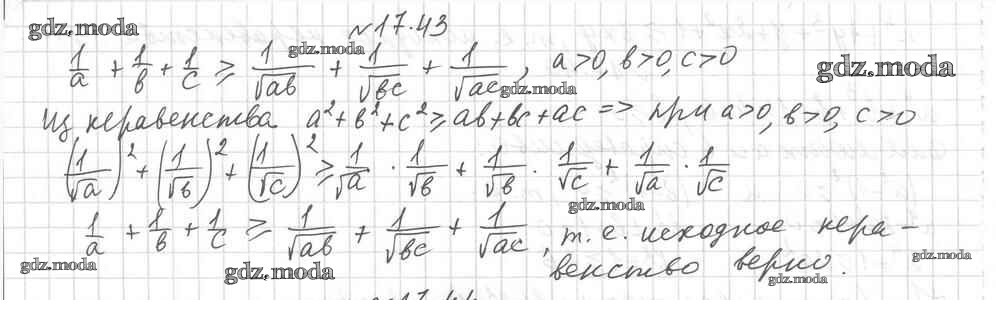 №17.43
gdz.moda
1/a + 1/b + 1/c ≥ 1/√ab + 1/√bc + 1/√ac, a>0, b>0, c>0
gdz.moda
gdz.moda
gdz.moda
Из неравенства a²+b²+c² ≥ ab+bc+ac => при a>0, b>0, c>0
(1/√a)² + (1/√b)² + (1/√c)² ≥ 1/√a · 1/√b + 1/√b · 1/√c + 1/√a · 1/√c
gdz.moda
1/a + 1/b + 1/c ≥ 1/√ab + 1/√bc + 1/√ac, т.е. исходное нера-
венство верно.
gdz.moda
gdz.moda
gdz.moda
gdz.moda